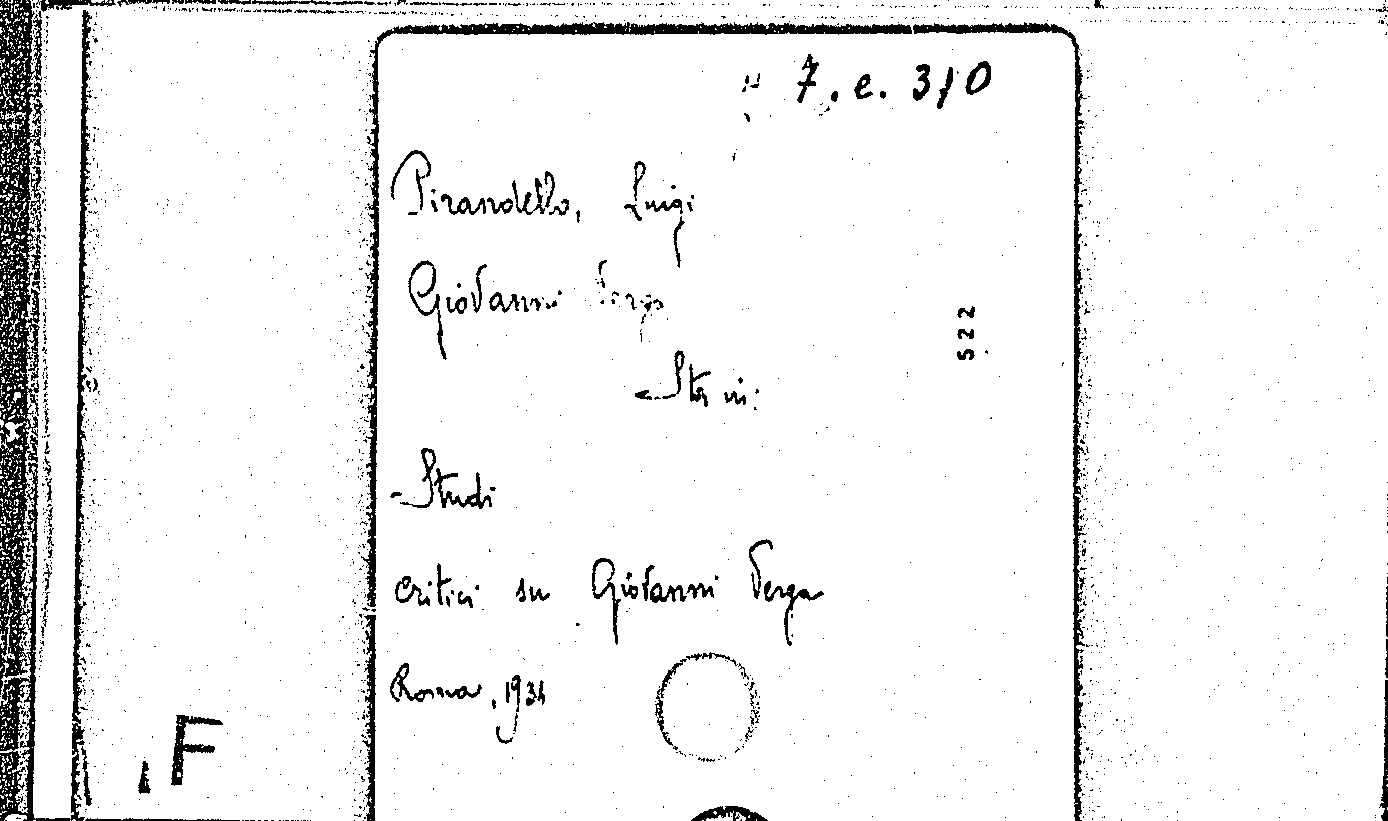 7. e. 310
Pirandello, Luigi
Giovanni Verga
Sta in:
522
Studi
critici su Giovanni Verga
Roma, 1934
F